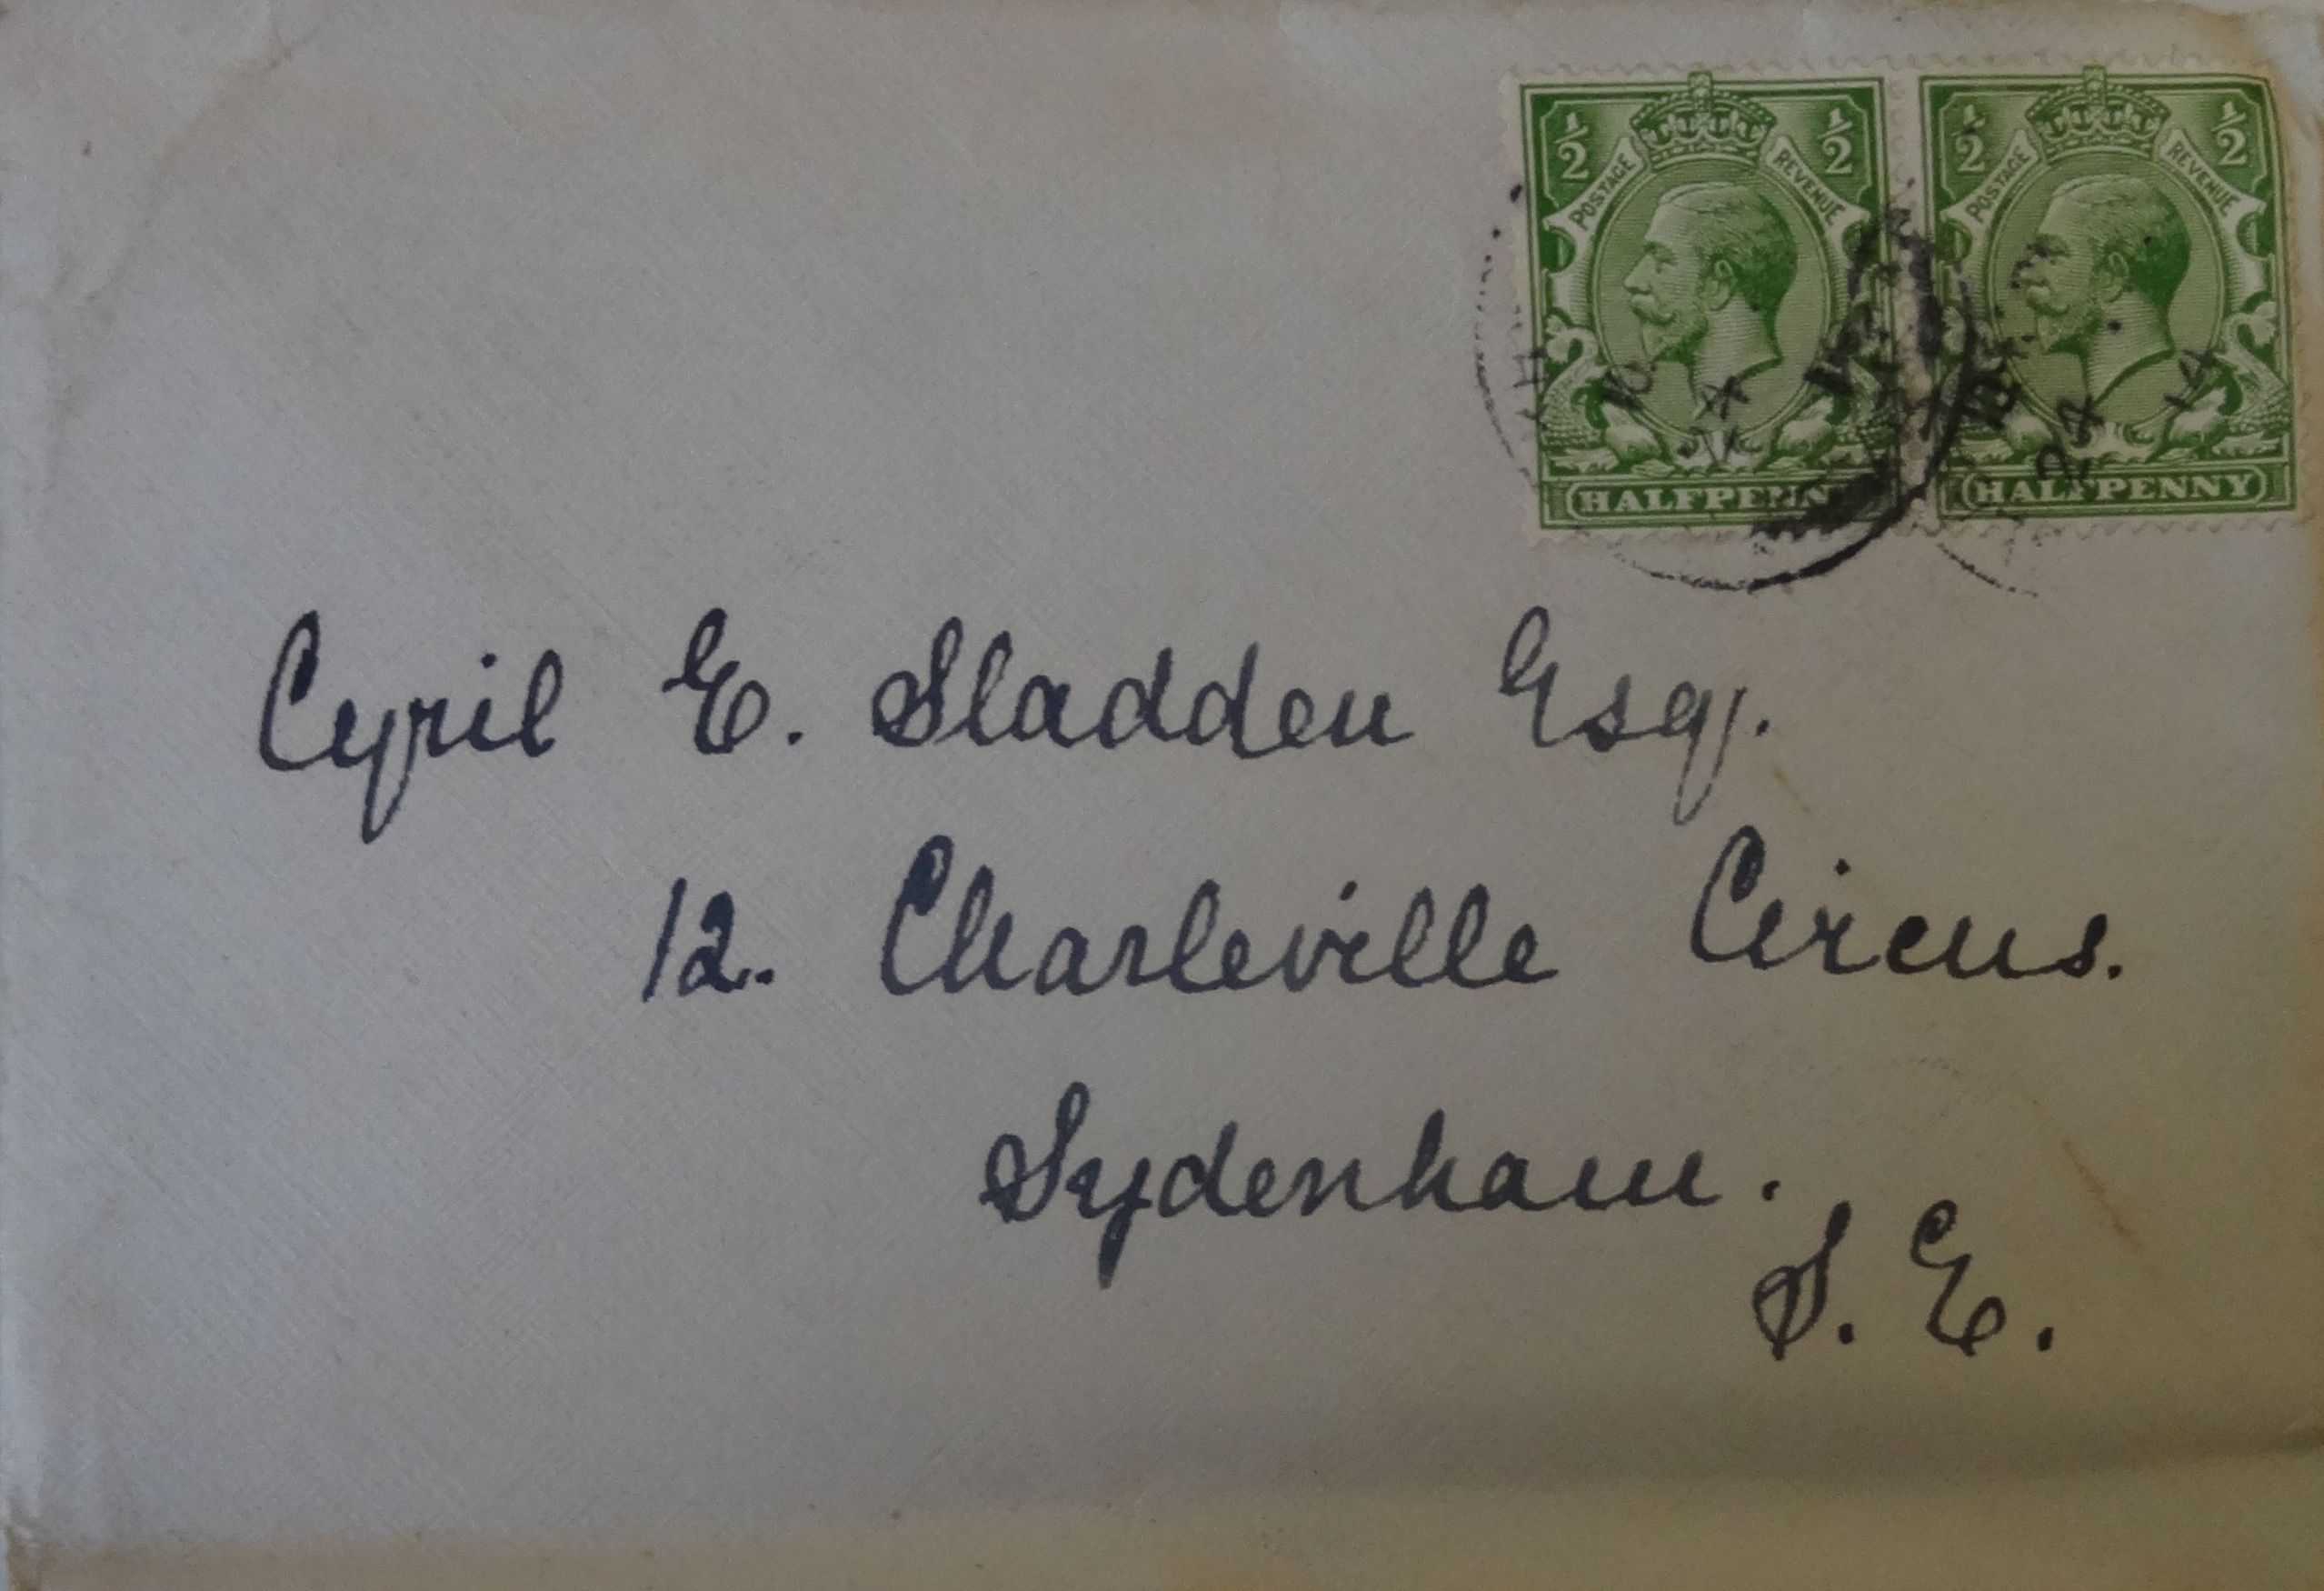 1/2 POSTAGE REVENUE 1/2 1/2 POSTAGE REVENUE 1/2
24 14
HALFPENNY HALFPENNY
Cyril E. Sladden Esq.
12. Charleville Circus.
Sydenham.
S. E.